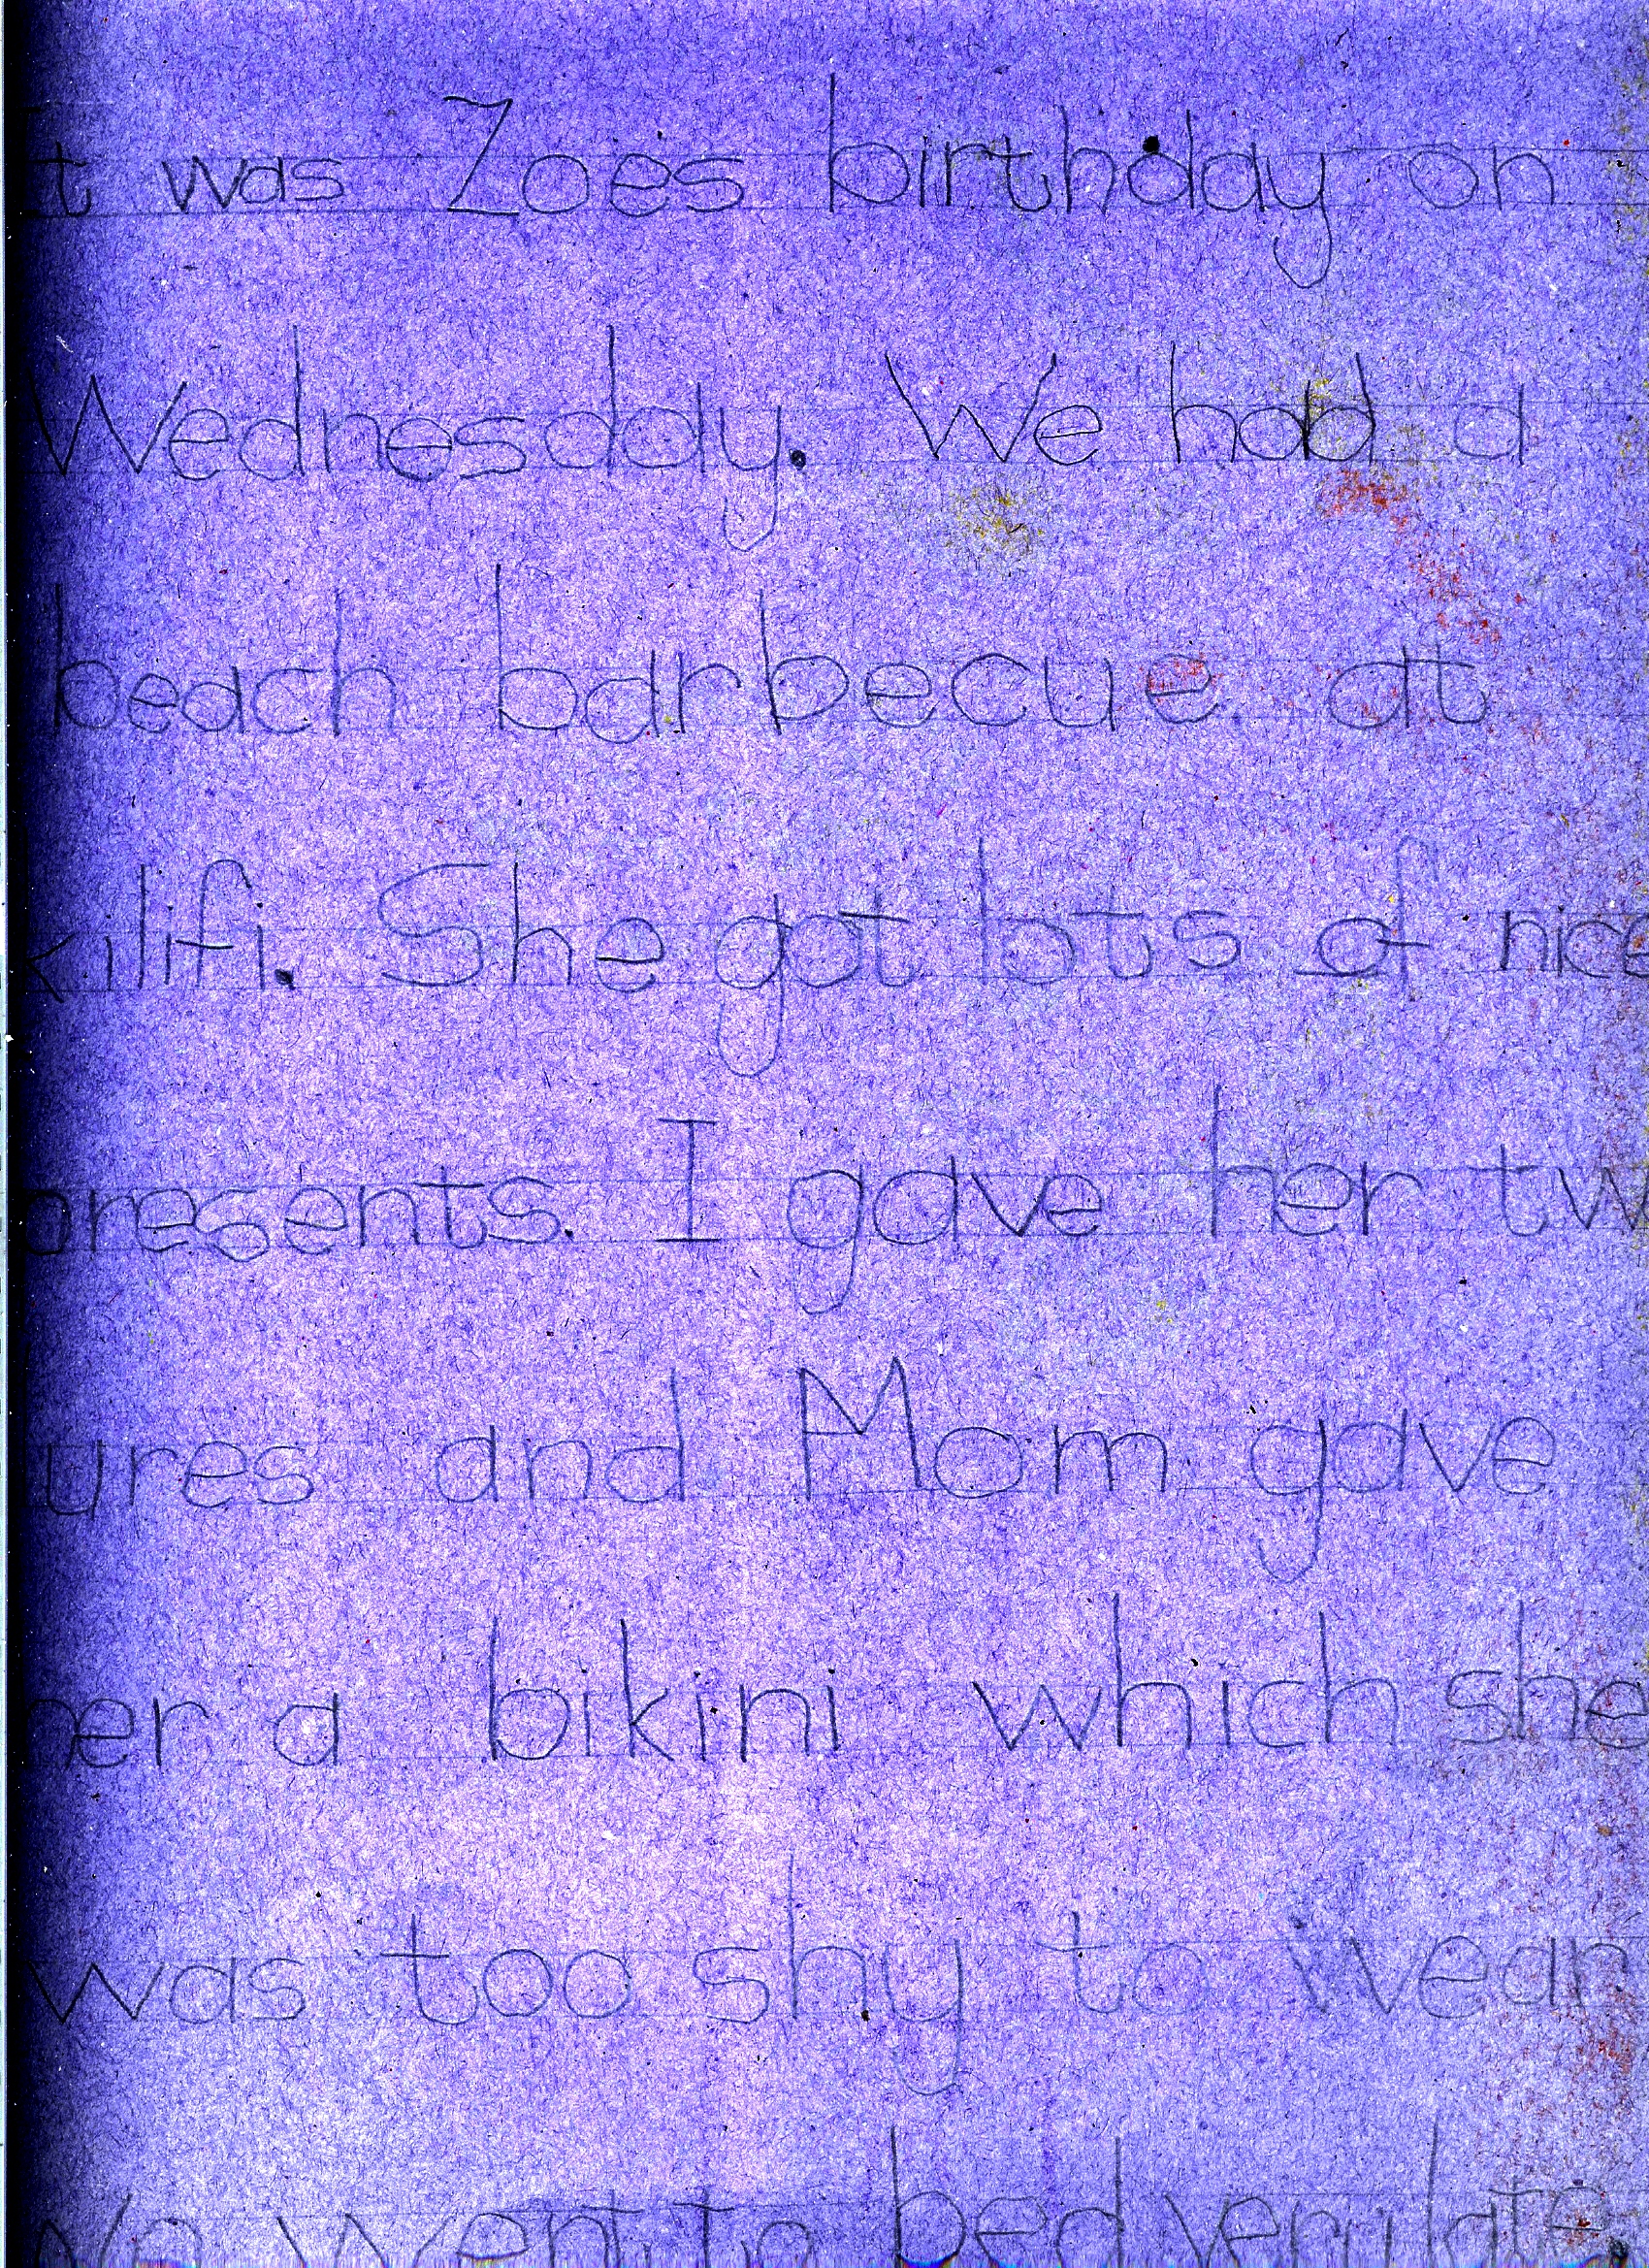 It was Zoes birthday on
Wednesday. We had a
beach barbecue at
kilifi. She got lots of nice
presents. I gave her tw
ures and Mom gave
her a bikini which she
was too shy to wear
We went to bed very late.